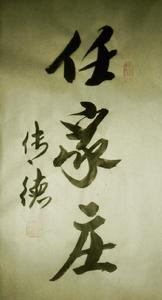 任家庄
传德